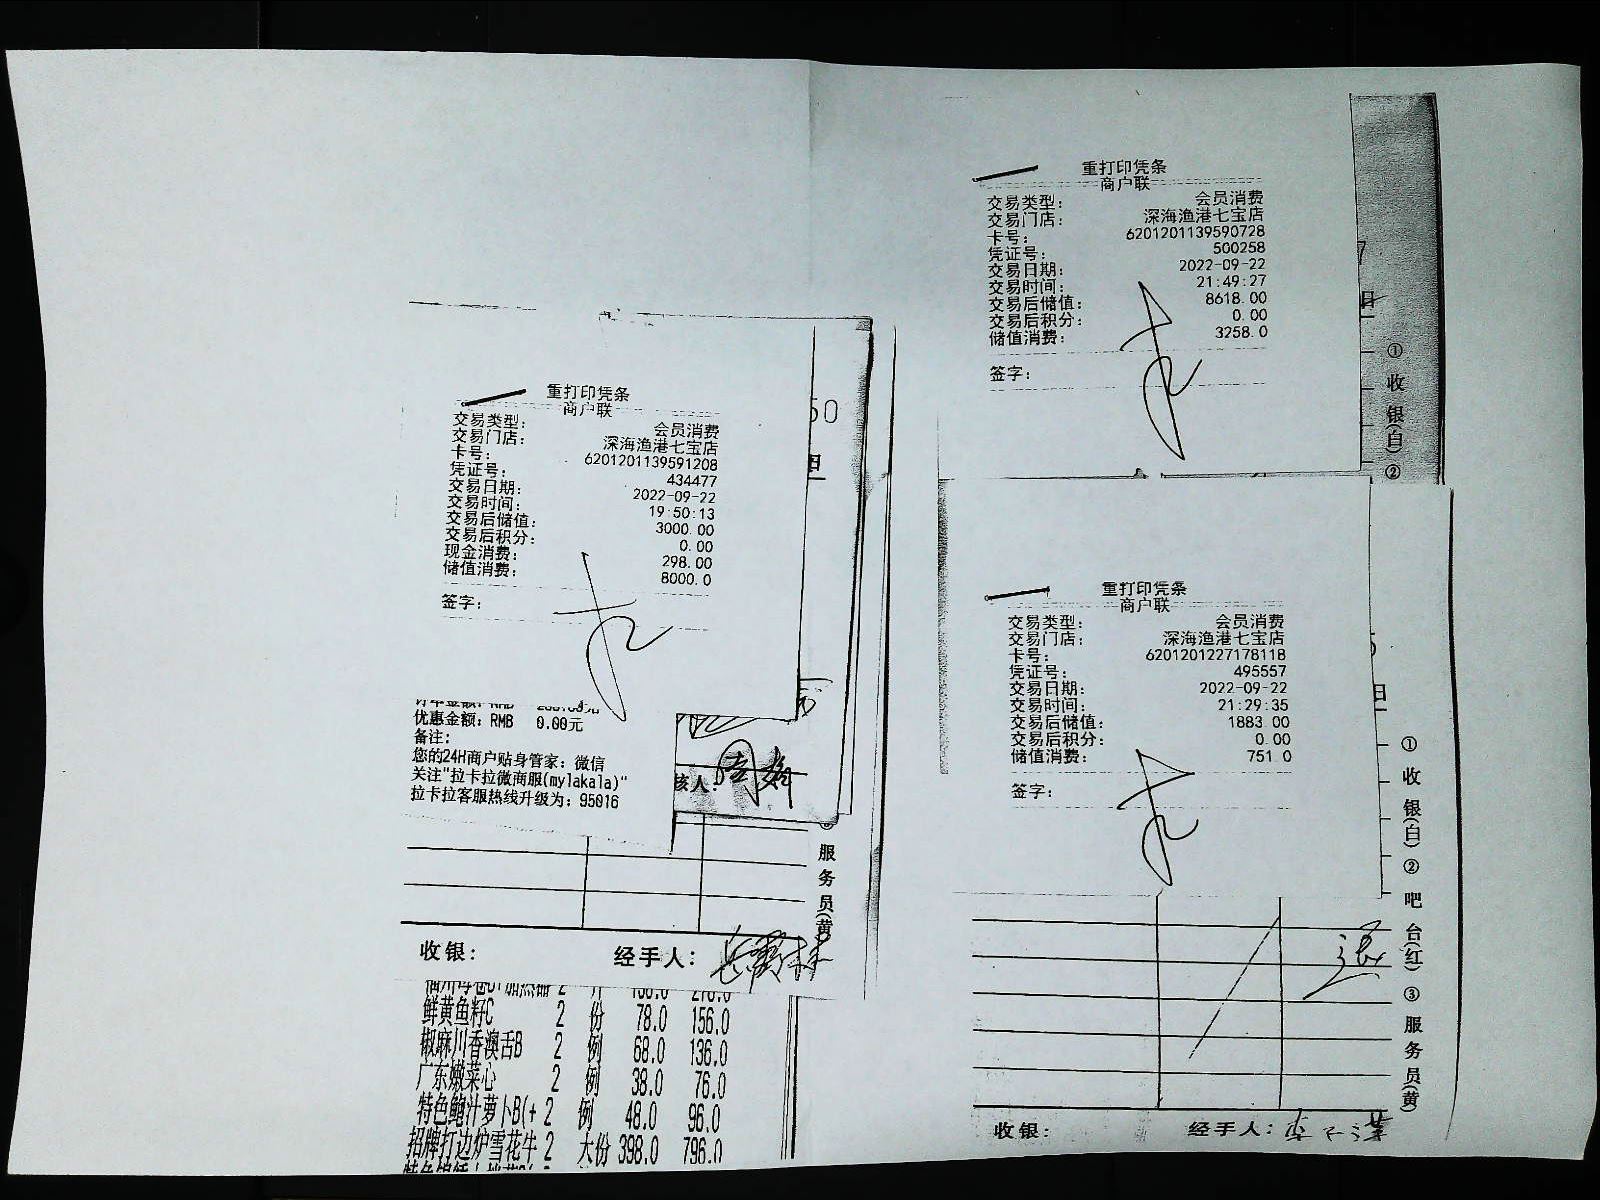 重打印凭条
商户联
交易类型： 会员消费
交易门店： 深海渔港七宝店
卡号： 6201201139591208
凭证号： 434477
交易日期： 2022-09-22
交易时间： 19:50:13
交易后储值： 3000.00
交易后积分： 0.00
现金消费： 298.00
储值消费： 8000.0
签字：
优惠金额：RMB 0.00元
备注：
您的24H商户贴身管家：微信
关注"拉卡拉微商服(mylakala)"
拉卡拉客服热线升级为：95016
50
核人：
服务员(黄)
收银： 经手人：
鲜黄鱼籽C 2 份 78.0 156.0
椒麻川香澳舌B 2 例 68.0 136.0
广东嫩菜心 2 例 38.0 76.0
特色鲍汁萝卜B(+ 2 例 48.0 96.0
招牌打边炉雪花牛 2 大份 398.0 796.0
重打印凭条
商户联
交易类型： 会员消费
交易门店： 深海渔港七宝店
卡号： 6201201139590728
凭证号： 500258
交易日期： 2022-09-22
交易时间： 21:49:27
交易后储值： 8618.00
交易后积分： 0.00
储值消费： 3258.0
签字：
①收银(白)②
重打印凭条
商户联
交易类型： 会员消费
交易门店： 深海渔港七宝店
卡号： 6201201227178118
凭证号： 495557
交易日期： 2022-09-22
交易时间： 21:29:35
交易后储值： 1883.00
交易后积分： 0.00
储值消费： 751.0
签字：
①收银(白)②吧台(红)③服务员(黄)
收银： 经手人：